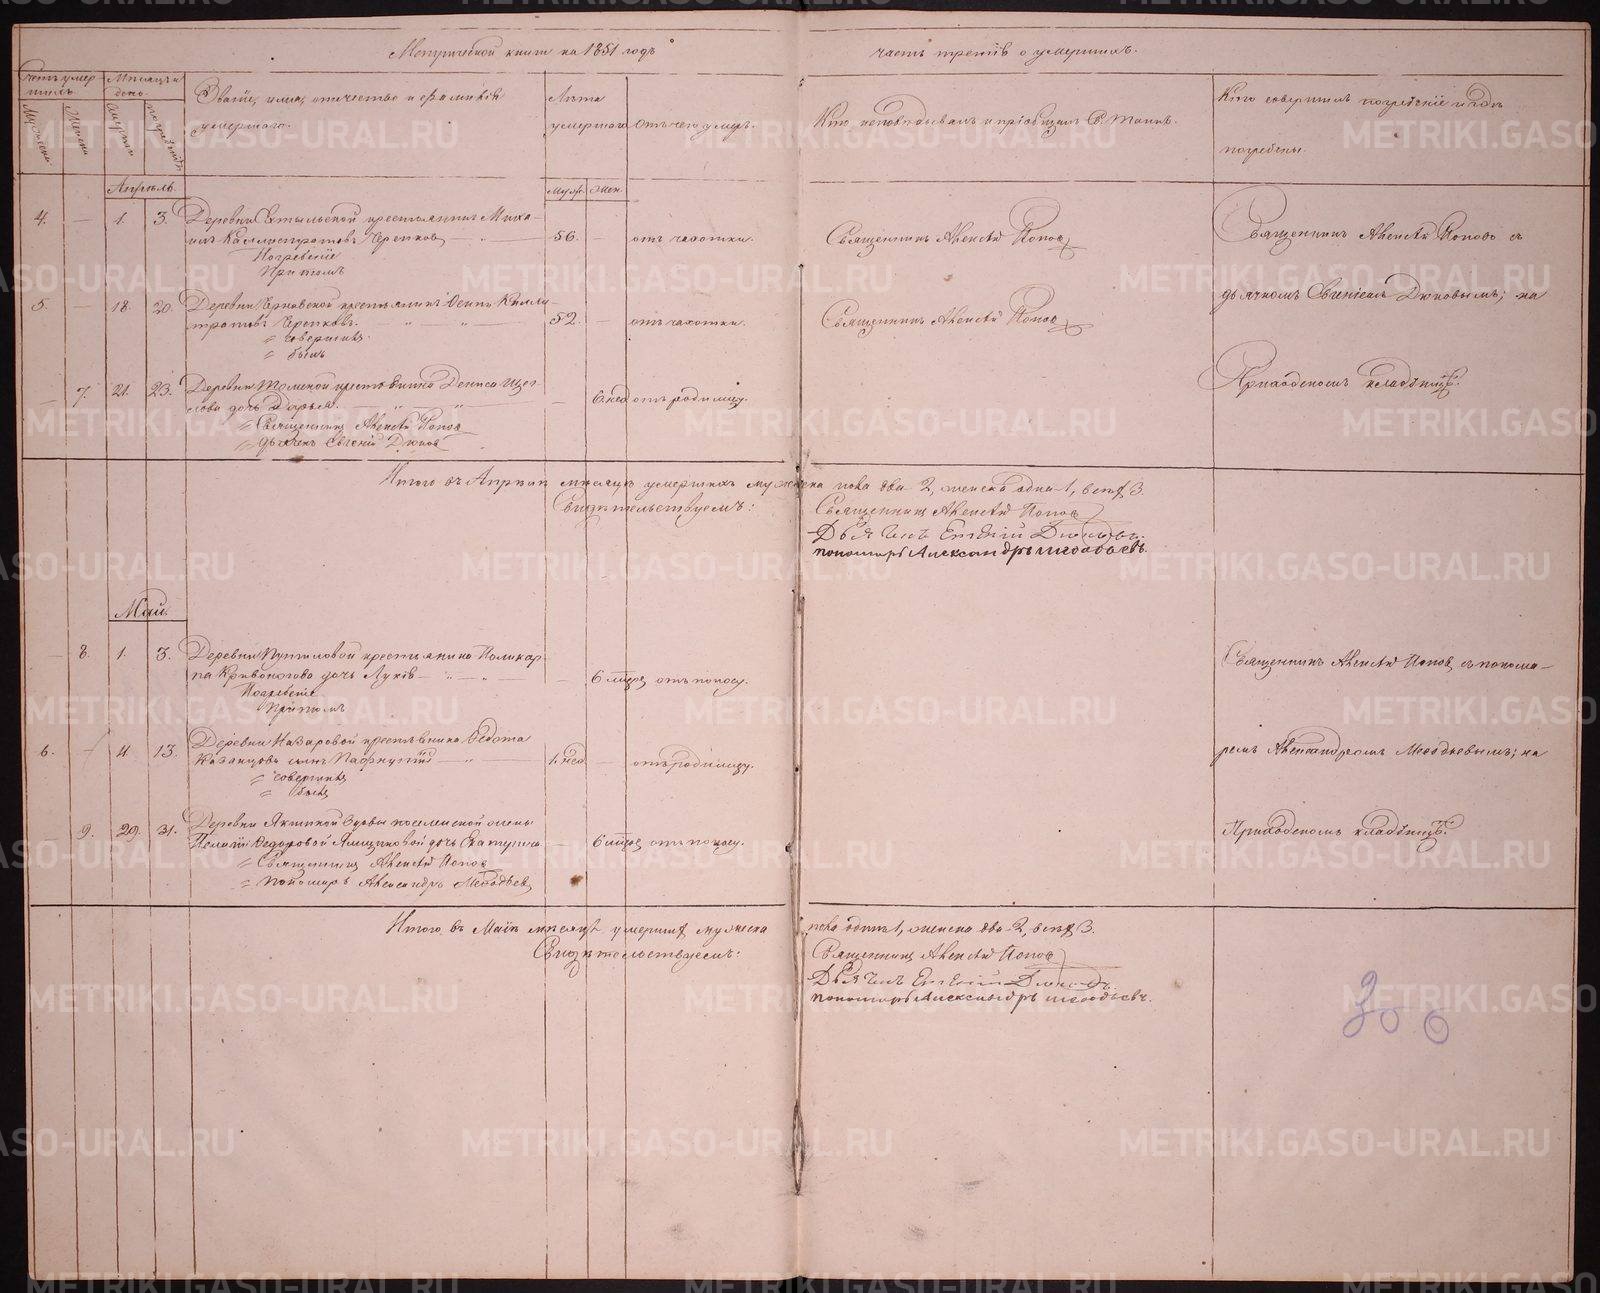 Метрической книги на 1851 годъ
часть третія о умершихъ.
Счетъ умер-
шихъ.
Мѣсяцъ и
день.
Званіе, имя, отчество и фамилія
умершаго.
Лѣта
умершаго
Отъ чего умеръ.
Кто исповѣдывалъ и пріобщалъ Св. Таинъ.
Кто совершилъ погребеніе и гдѣ
погребены.
Мужеска
Женска
смерти
погребенія
Апрѣль.
Муж.
Жен.
4. — 1. 3. Деревни крестьянинъ Миха-
илъ Каллистратовъ Черепковъ 56. — отъ чахотки.
Погребеніе
При томъ
Священникъ Алексѣй Поповъ
Священникъ Алексѣй Поповъ съ
5. — 18. 20. Деревни крестьянинъ Осипъ Калли-
стратовъ Черепковъ. 52. — отъ чахотки.
〃 совершилъ.
〃 былъ
Священникъ Алексѣй Поповъ
дьячкомъ Евгеніемъ Дюковымъ; на
— 7. 21. 23. Деревни крестьянина Дениса
дочь Дарья. — 6. нед отъ родимцу.
〃 Священникъ Алексѣй Поповъ
〃 дьячекъ Евгеній Дюковъ
Приходскомъ кладбищѣ.
Итого въ Апрѣлѣ мѣсяцѣ умершихъ мужеска пола два 2, женска одна 1, всѣхъ 3.
Свидѣтельствуемъ:
Священникъ Алексѣй Поповъ
Дьячекъ Евгеній Дюковъ.
пономарь Александръ Меѳодьевъ.
Май.
— 8. 1. 3. Деревни Путиловой крестьянина Поликар-
па Кривоногова дочь — 6 мѣсяц отъ поносу.
Погребеніе
При томъ
Священникъ Алексѣй Поповъ съ понома-
6. — 4. 13. Деревни Назаровой крестьянина Ѳедота
Казанцова сынъ Пафнутій 1. нед — отъ родимцу.
〃 совершилъ
〃 былъ
ремъ Александромъ Меѳодьевымъ; на
— 9. 29. 31. Деревни вдовы поселенской жены
Пелагіи Ѳедоровой дочь — 6 мѣсяц отъ поносу.
〃 Священникъ Алексѣй Поповъ
〃 пономарь Александръ Меѳодьевъ
Приходскомъ кладбищѣ.
Итого въ Маѣ мѣсяцѣ умершихъ мужеска пола одинъ 1, женска два 2, всѣхъ 3.
Свидѣтельствуемъ:
Священникъ Алексѣй Поповъ
Дьячекъ Евгеній Дюковъ.
пономарь Александръ Меѳодьевъ.
METRIKI.GASO-URAL.RU